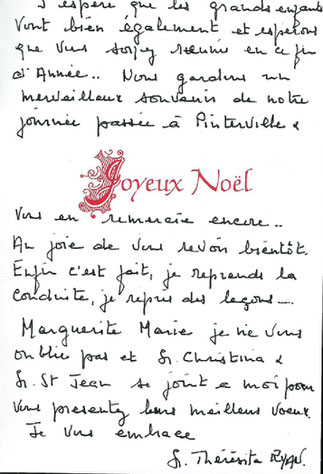 J'espère que les grands enfants
vont bien également et espérons
que vous soyez réunis en ce fin
d'Année.. Nous gardons un
merveilleux souvenir de notre
journée passée à Pinterville &
Joyeux Noël
Vous en remercie encore..
Au joie de vous revoir bientôt.
Enfin c'est fait, je reprends la
conduite, je repris des leçons...
Marguerite Marie je ne vous
oublie pas et Sr. Christina &
Sr. St Jean se joint a moi pour
vous presentez leurs meilleurs voeux.
Je vous embrace
Sr. Thérèsita RYAN.